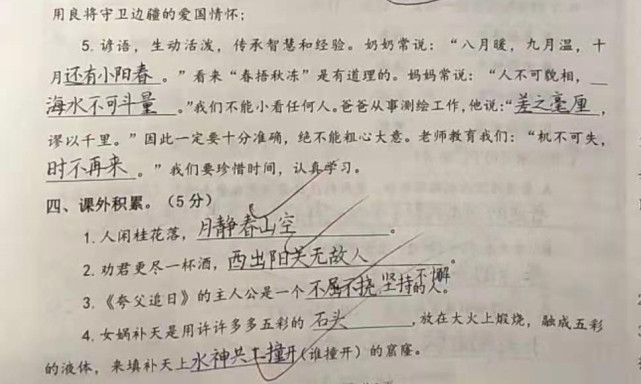 用良将守卫边疆的爱国情怀；
5. 谚语，生动活泼，传承智慧和经验。奶奶常说：“八月暖，九月温，十
月还有小阳春。”看来“春捂秋冻”是有道理的。妈妈常说：“人不可貌相，
海水不可斗量。”我们不能小看任何人。爸爸从事测绘工作，他说：“差之毫厘，
谬以千里。”因此一定要十分准确，绝不能粗心大意。老师教育我们：“机不可失，
时不再来。”我们要珍惜时间，认真学习。
四、课外积累。（5分）
1. 人闲桂花落，月静春山空。
2. 劝君更尽一杯酒，西出阳关无故人。
3. 《夸父追日》的主人公是一个不屈不挠，坚持不懈的人。
4. 女娲补天是用许许多多五彩的石头，放在大火上煅烧，融成五彩
的液体，来填补天上水神共工撞开（谁撞开）的窟窿。